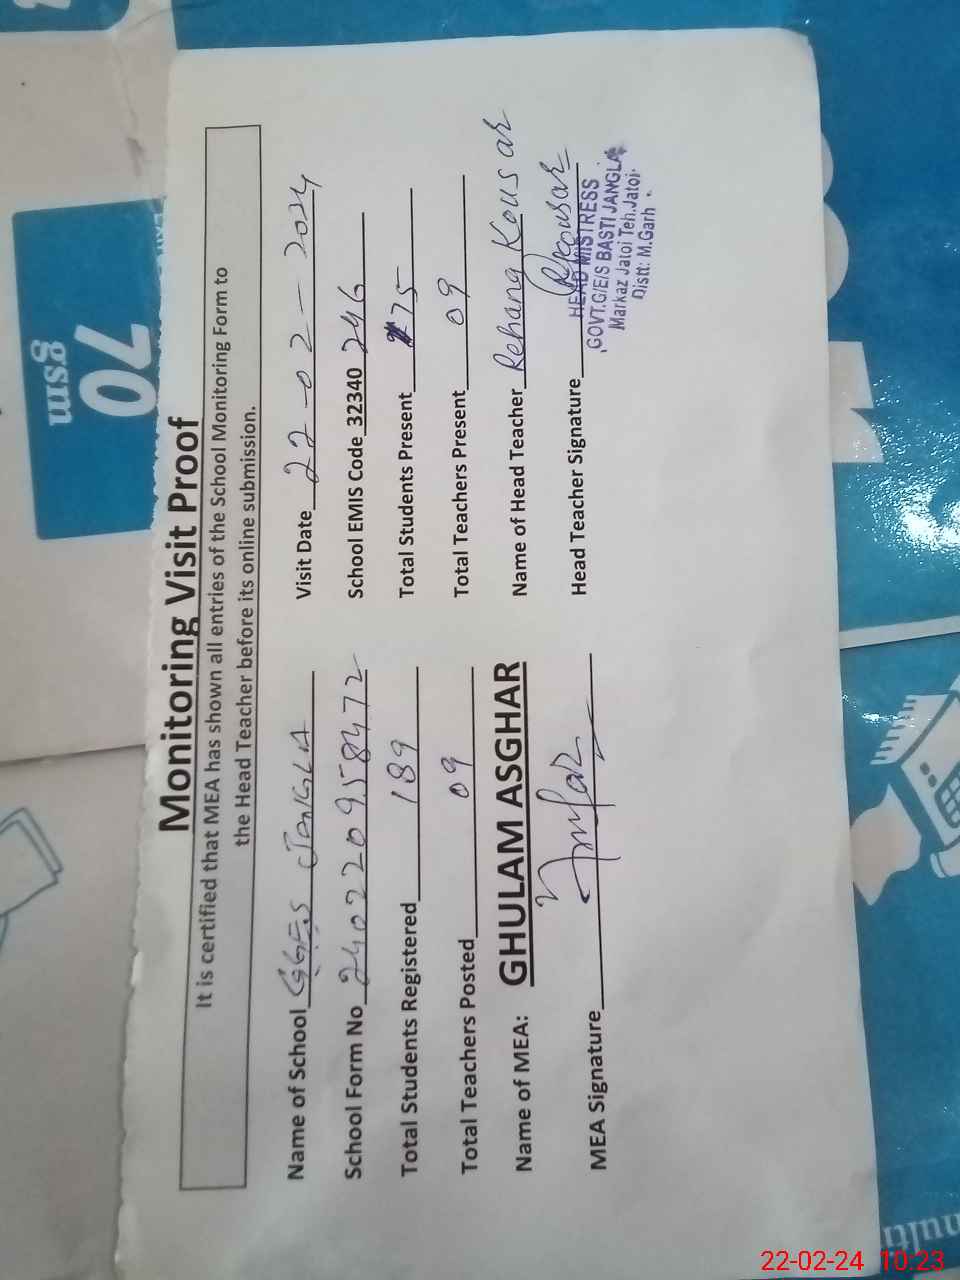 70
gsm
Monitoring Visit Proof
It is certified that MEA has shown all entries of the School Monitoring Form to
the Head Teacher before its online submission.
Name of School GGES JANGLA Visit Date 22-02-2024
School Form No 240220958472 School EMIS Code 32340 246
Total Students Registered 189 Total Students Present 175
Total Teachers Posted 09 Total Teachers Present 09
Name of MEA: GHULAM ASGHAR Name of Head Teacher Rehang Kousar
MEA Signature Head Teacher Signature RKousar
HEAD MISTRESS
GOVT.G/E/S BASTI JANGLA
Markaz Jatoi Teh.Jatoi.
Distt: M.Garh.
22-02-24 10:23